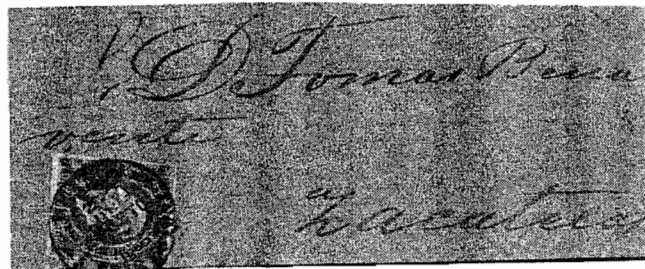 D. Tomas Bena
vente
Zacatecas